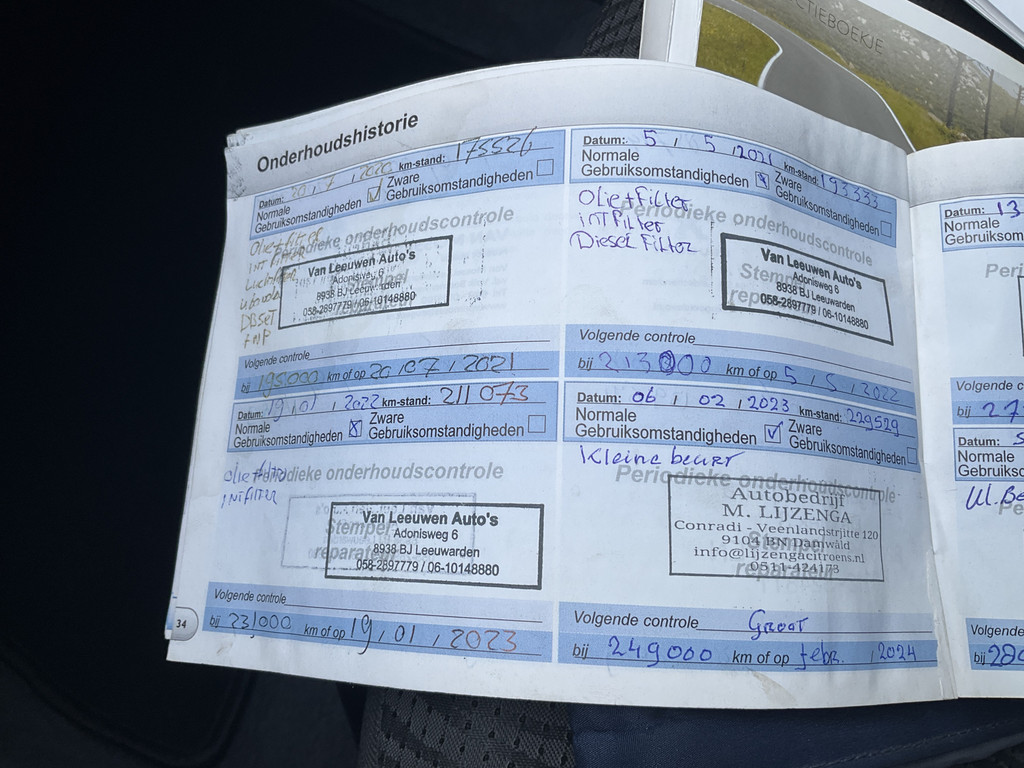 CTIEBOEKJE
Onderhoudshistorie
Datum: 20 / 7 / 2020 km-stand: 175526
Normale
Gebruiksomstandigheden
Zware
Gebruiksomstandigheden
Periodieke onderhoudscontrole
Olie+filter
INT FILTER
Van Leeuwen Auto's
Adonisweg 6
8938 BJ Leeuwarden
058-2897779 / 06-10148880
Volgende controle
bij 195000 km of op 20 / 07 / 2021
Datum: 5 / 5 / 2021 km-stand: 193333
Normale
Gebruiksomstandigheden
Zware
Gebruiksomstandigheden
Olie+Filter
intFilter
Diesel Filter
Periodieke onderhoudscontrole
Stempel
reparateur
Van Leeuwen Auto's
Adonisweg 6
8938 BJ Leeuwarden
058-2897779 / 06-10148880
Volgende controle
bij 213000 km of op 5 / 5 / 2022
Datum: 19 / 01 / 2022 km-stand: 211073
Normale
Gebruiksomstandigheden
Zware
Gebruiksomstandigheden
Periodieke onderhoudscontrole
olie+filter
INTFILTER
Stempel
reparateur
Van Leeuwen Auto's
Adonisweg 6
8938 BJ Leeuwarden
058-2897779 / 06-10148880
Volgende controle
bij 231000 km of op 19 / 01 / 2023
34
Datum: 06 / 02 / 2023 km-stand: 229529
Normale
Gebruiksomstandigheden
Zware
Gebruiksomstandigheden
Kleine beurt
Periodieke onderhoudscontrole
Stempel
reparateur
Autobedrijf
M. LIJZENGA
Conradi - Veenlandstrjitte 120
9104 BN Damwâld
info@lijzengacitroens.nl
0511-424173
Volgende controle Groot
bij 249000 km of op febr. / 2024
Datum: 13
Normale
Gebruiksom
Peri
Volgende c
bij 27
Datum: S
Normale
Gebruiksc
Kl. Be
Pe
Volgende
bij 280